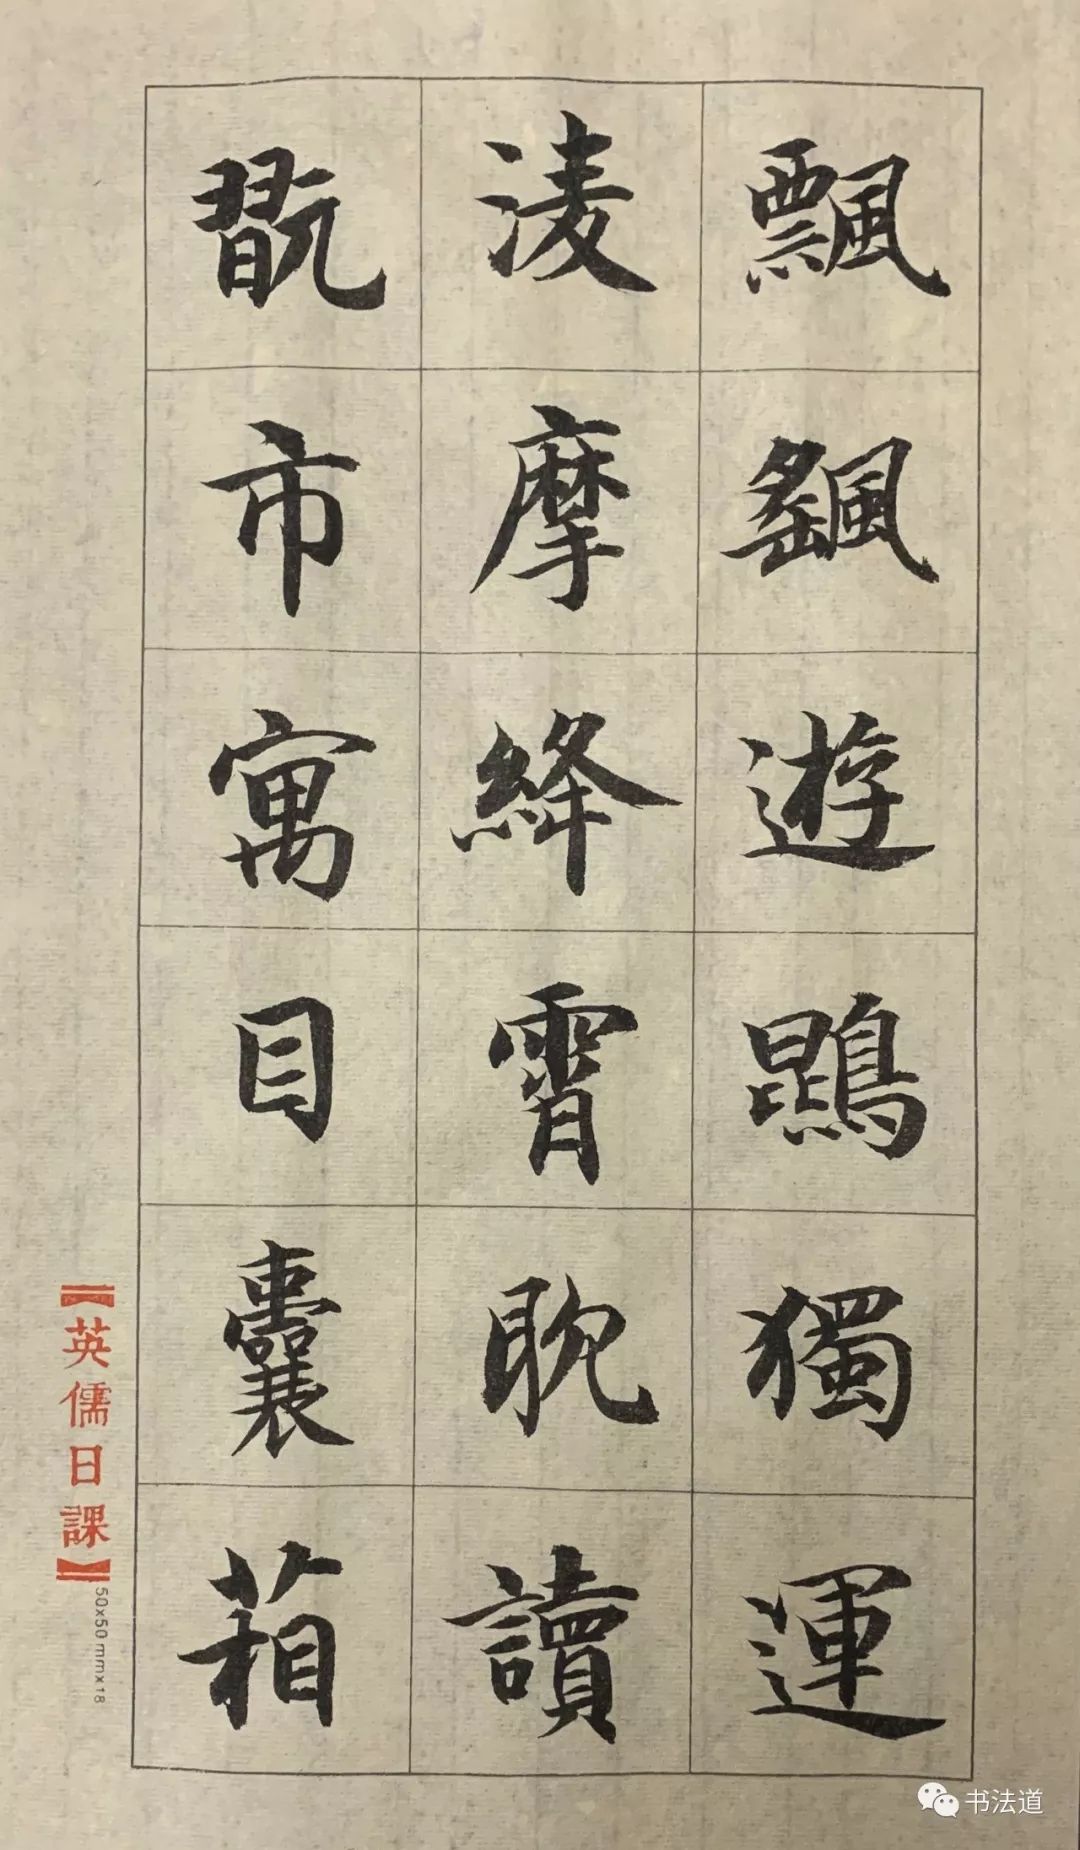 飄颻遊鵾獨運
淩摩絳霄耽讀
翫市寓目囊箱
【英儒日課】
50x50mmx18
书法道